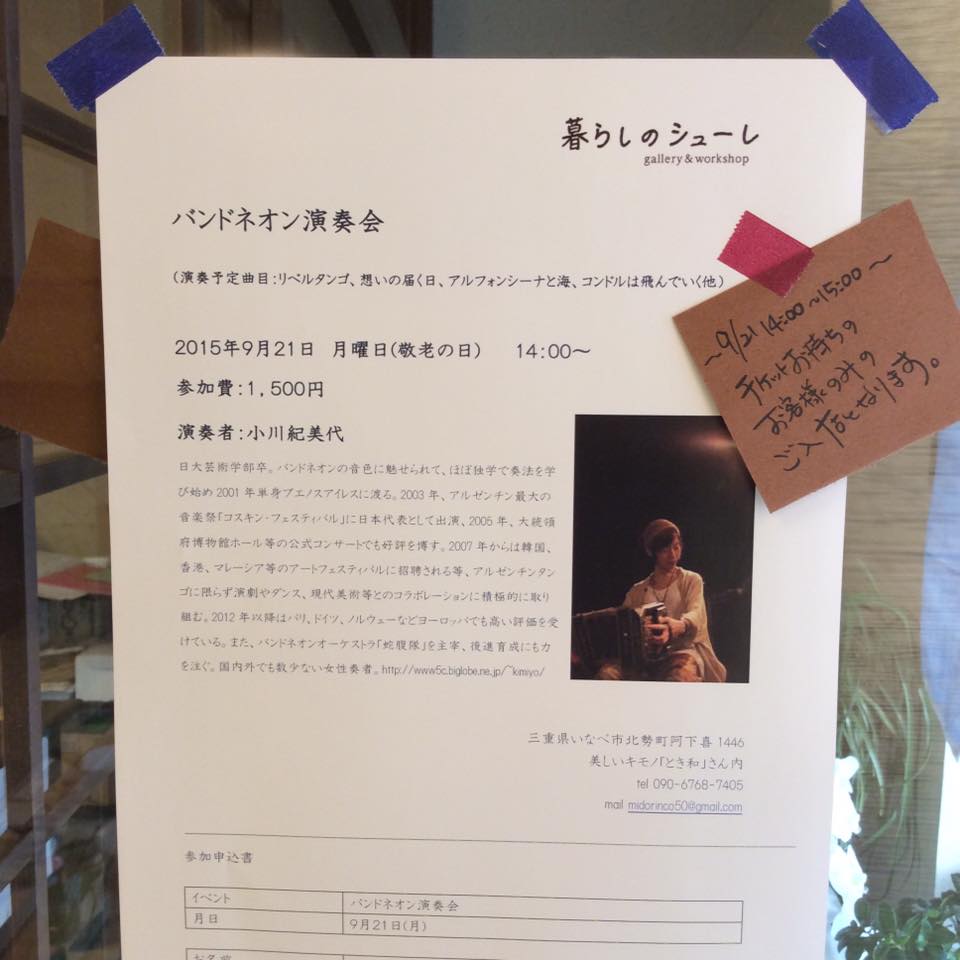 暮らしのシューレ
gallery & workshop
バンドネオン演奏会
(演奏予定曲目:リベルタンゴ、想いの届く日、アルフォンシーナと海、コンドルは飛んでいく他)
2015年9月21日 月曜日(敬老の日) 14:00~
参加費:1,500円
演奏者:小川紀美代
日大芸術学部卒。バンドネオンの音色に魅せられて、ほぼ独学で奏法を学
び始め2001年単身ブエノスアイレスに渡る。2003年、アルゼンチン最大の
音楽祭「コスキン・フェスティバル」に日本代表として出演、2005年、大統領
府博物館ホール等の公式コンサートでも好評を博す。2007年からは韓国、
香港、マレーシア等のアートフェスティバルに招聘される等、アルゼンチンタン
ゴに限らず演劇やダンス、現代美術等とのコラボレーションに積極的に取り
組む。2012年以降はパリ、ドイツ、ノルウェーなどヨーロッパでも高い評価を受
けている。また、バンドネオンオーケストラ「蛇腹隊」を主宰、後進育成にも力
を注ぐ。国内外でも数少ない女性奏者。http://www5c.biglobe.ne.jp/~kimiyo/
~9/21 14:00~15:00~
チケットお持ちの
お客様のみの
ご入店となります。
三重県いなべ市北勢町阿下喜1446
美しいキモノ「とき和」さん内
tel 090-6768-7405
mail midorinco50@gmail.com
参加申込書
イベント バンドネオン演奏会
月日 9月21日(月)
お名前